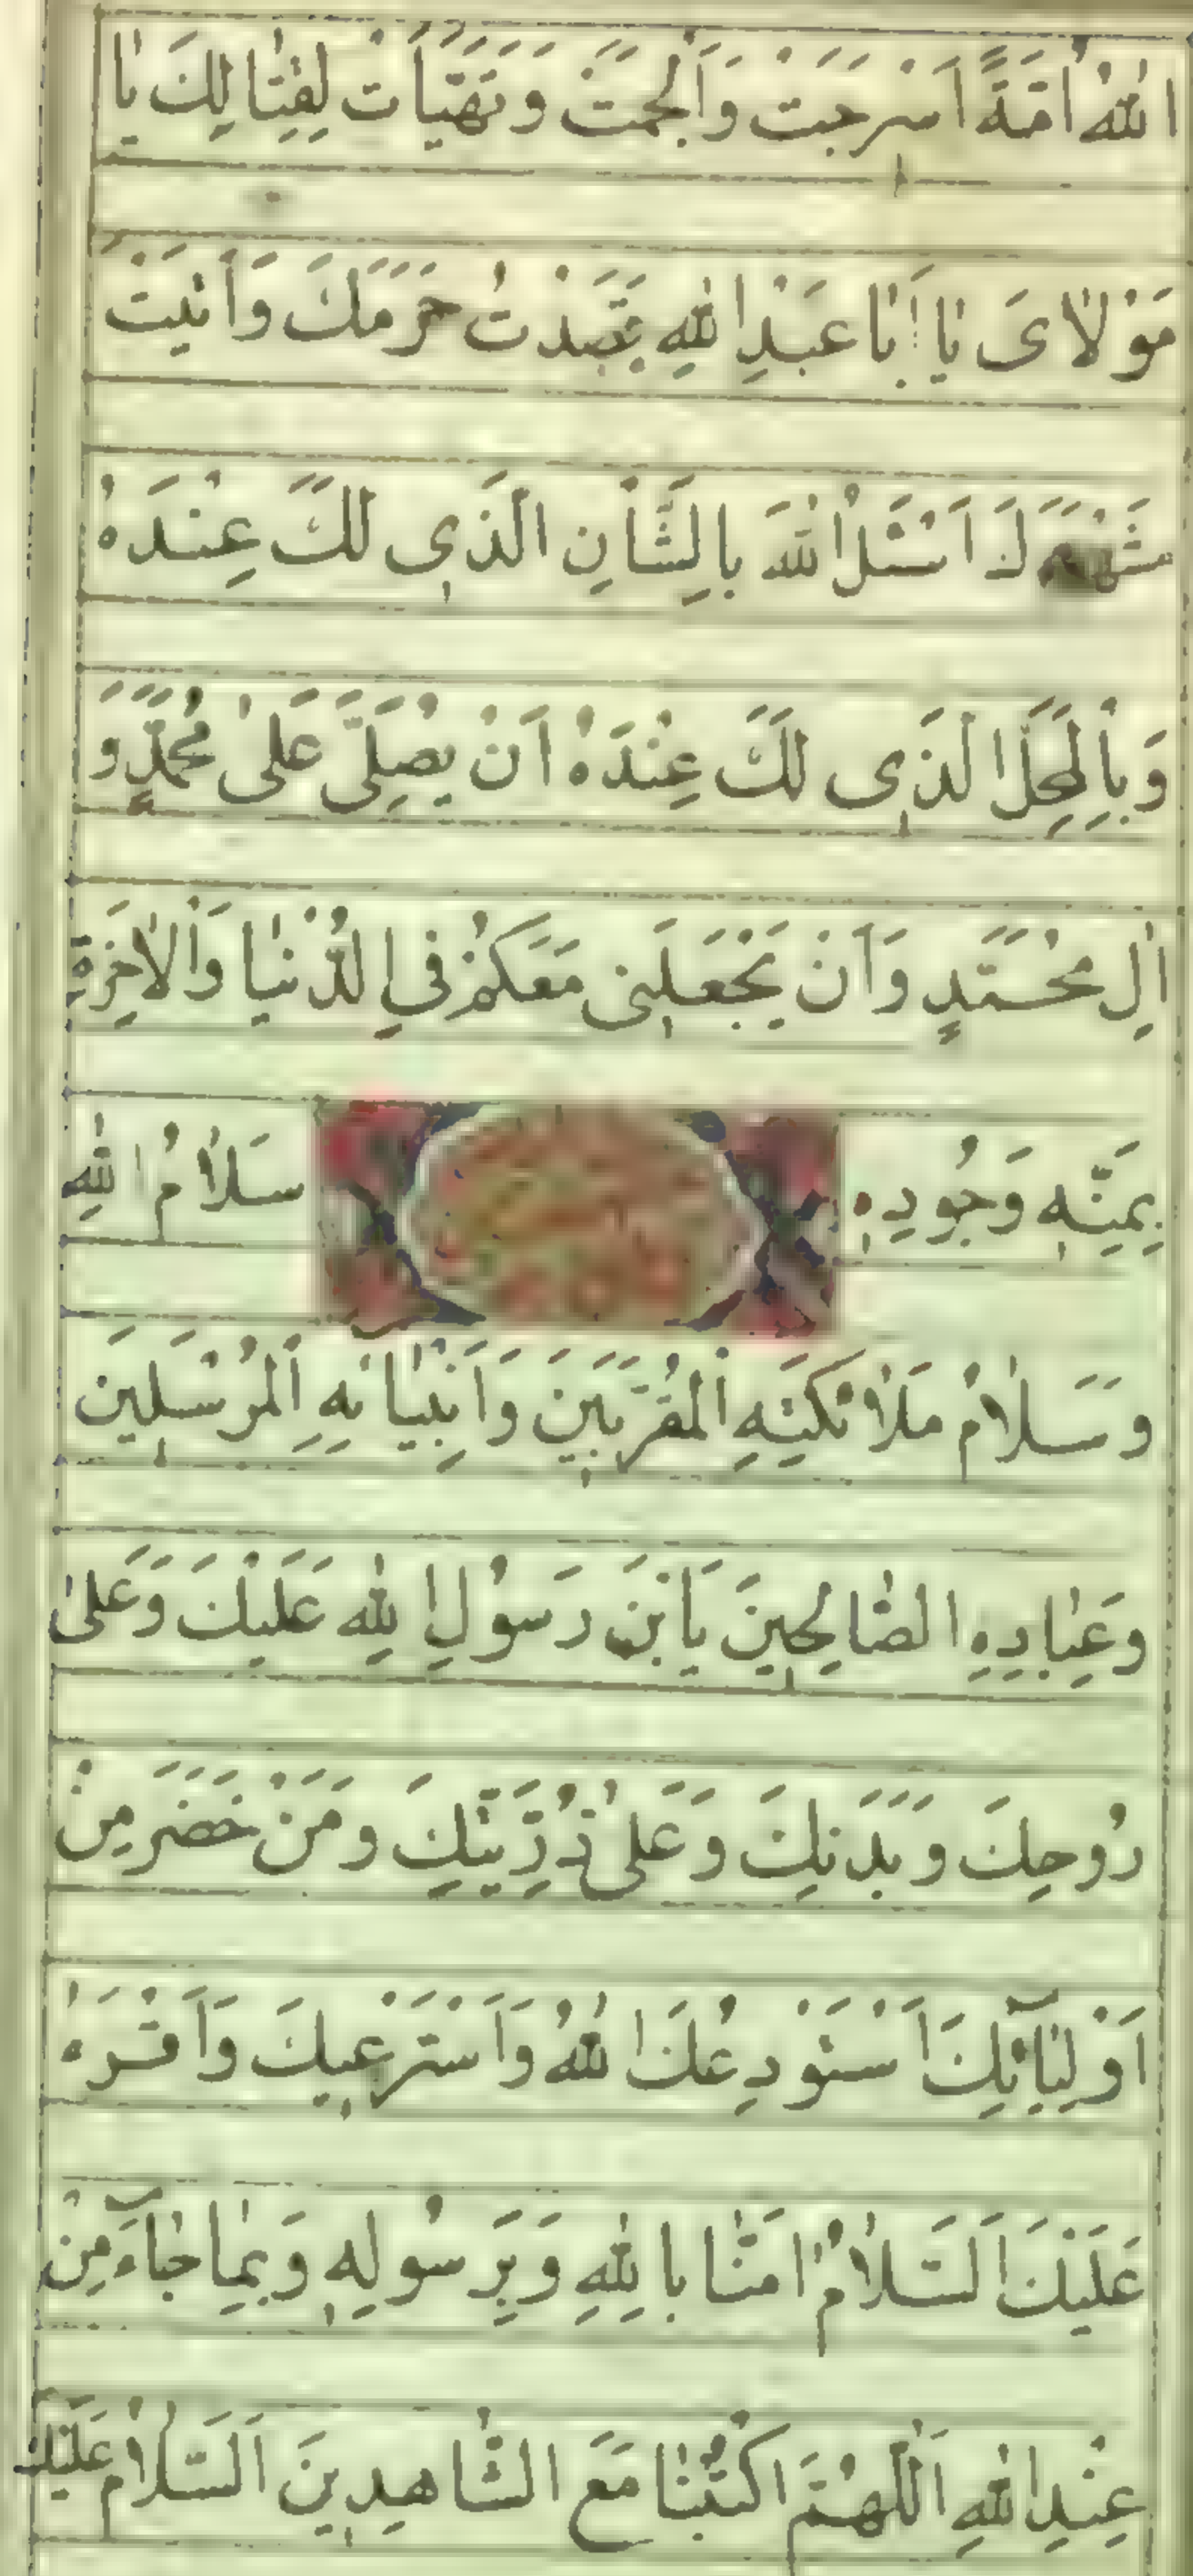 اللهُ اُمَّةً اَسْرَجَتْ وَاَلْجَمَتْ وَتَهَيَّأَتْ لِقِتٰالِكَ يٰا
مَوْلاٰىَ يٰا اَبٰا عَبْدِاللهِ قَصَدْتُ حَرَمَكَ وَاَتَيْتُ
مَشْهَدَكَ اَسْئَلُ اللهَ بِالشَّأْنِ الَّذٖى لَكَ عِنْدَهُ
وَبِالْمَحَلِّ الَّذٖى لَكَ عِنْدَهُ اَنْ يُصَلِّىَ عَلىٰ مُحَمَّدٍ وَ
اٰلِ مُحَمَّدٍ وَاَنْ يَجْعَلَنٖى مَعَكُمْ فِى الدُّنْيٰا وَالْاٰخِرَةِ
بِمَنِّهٖ وَجُودِهٖ سَلاٰمُ اللهِ
وَسَلاٰمُ مَلاٰئِكَتِهِ الْمُقَرَّبٖينَ وَاَنْبِيٰائِهِ الْمُرْسَلٖين
وَعِبٰادِهِ الصّٰالِحٖينَ يَابْنَ رَسُولِ اللهِ عَلَيْكَ وَعَلىٰ
رُوحِكَ وَبَدَنِكَ وَعَلىٰ ذُرِّيَّتِكَ وَمَنْ حَضَرَ مِنْ
اَوْلِيٰآئِكَ اَسْتَوْدِعُكَ اللهُ وَاَسْتَرْعٖيكَ وَاَقْرَءُ
عَلَيْكَ السَّلاٰمُ اٰمَنّٰا بِاللهِ وَبِرَسُولِهٖ وَبِمٰا جٰآءَ مِنْ
عِنْدِ اللهِ اَللّٰهُمَّ اكْتُبْنٰا مَعَ الشّٰاهِدٖينَ اَلسَّلاٰمُ عَلَيْكَ